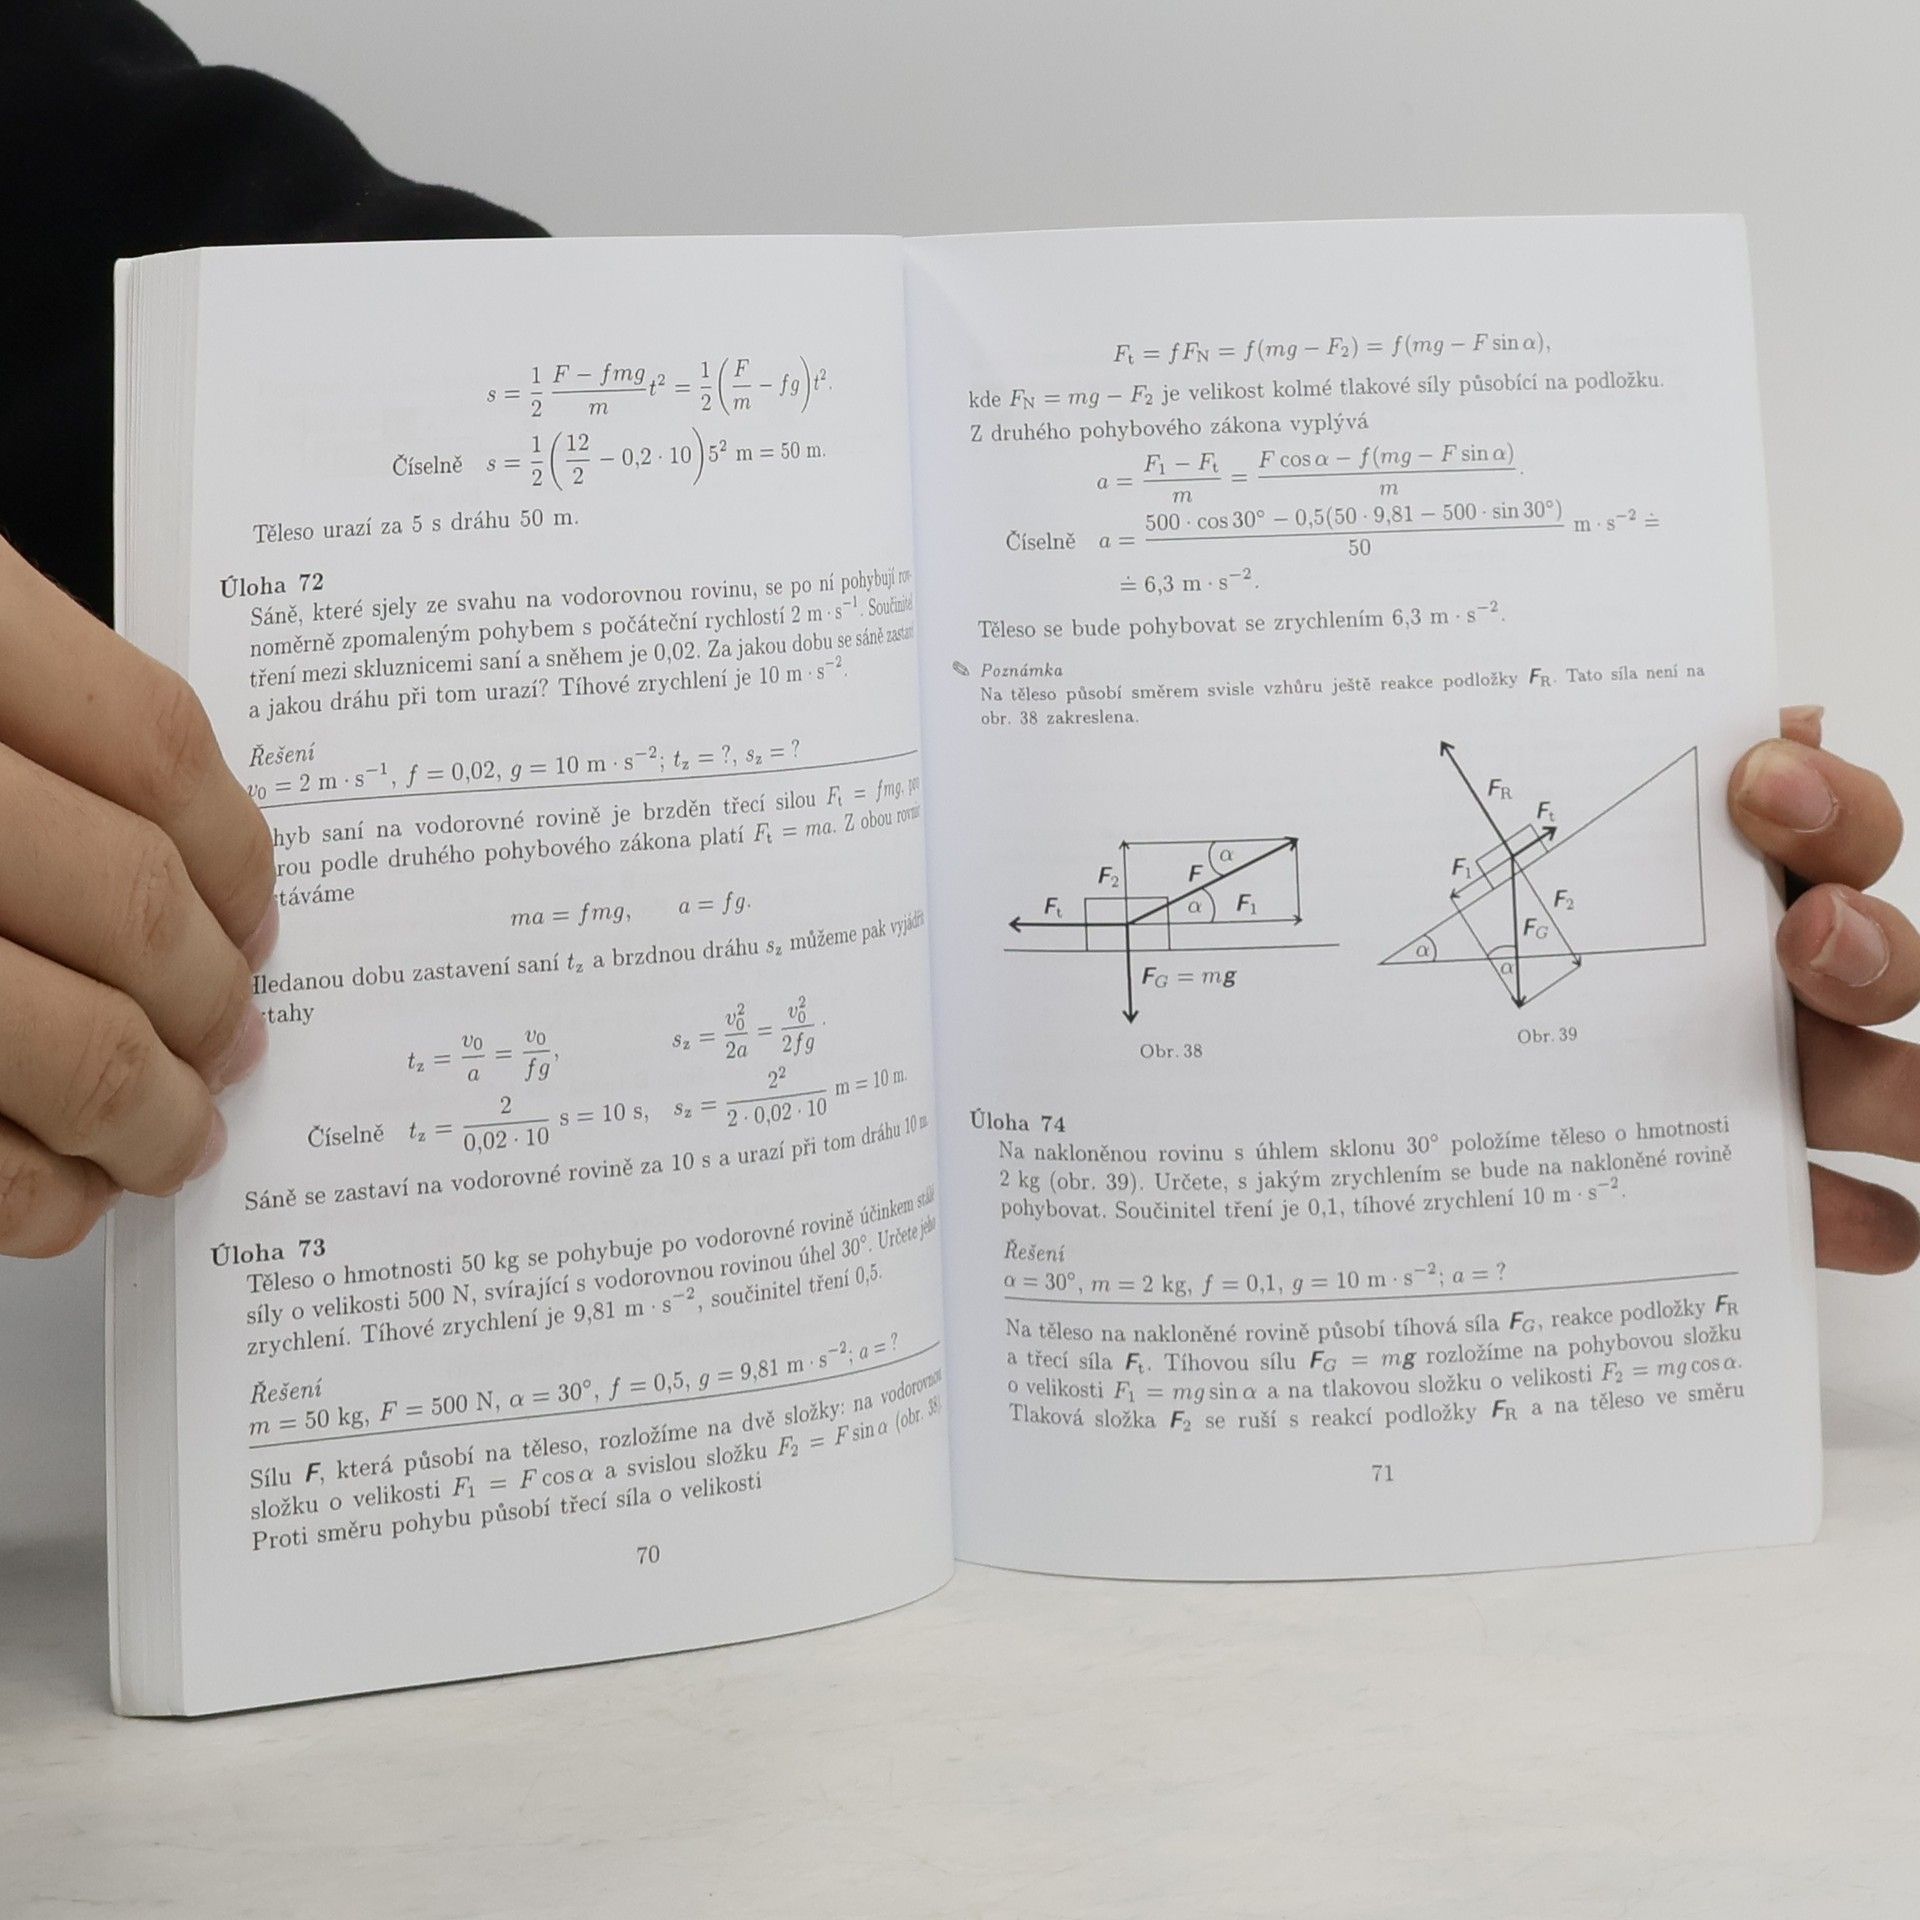 s = 1/2 (F − fmg)/m t² = 1/2 (F/m − fg)t².
Číselně s = 1/2 (12/2 − 0,2 · 10)5² m = 50 m.
Těleso urazí za 5 s dráhu 50 m.
Úloha 72
Sáně, které sjely ze svahu na vodorovnou rovinu, se po ní pohybují rov-
noměrně zpomaleným pohybem s počáteční rychlostí 2 m · s⁻¹. Součinitel
tření mezi skluznicemi saní a sněhem je 0,02. Za jakou dobu se sáně zastaví
a jakou dráhu při tom urazí? Tíhové zrychlení je 10 m · s⁻².
Řešení
v₀ = 2 m · s⁻¹, f = 0,02, g = 10 m · s⁻²; t_z = ?, s_z = ?
hyb saní na vodorovné rovině je brzděn třecí silou F_t = fmg, pro
rou podle druhého pohybového zákona platí F_t = ma. Z obou rovnic
táváme
ma = fmg, a = fg.
Hledanou dobu zastavení saní t_z a brzdnou dráhu s_z můžeme pak vyjádřit
tahy
t_z = v₀/a = v₀/fg, s_z = v₀²/2a = v₀²/2fg.
Číselně t_z = 2/(0,02 · 10) s = 10 s, s_z = 2²/(2 · 0,02 · 10) m = 10 m.
Sáně se zastaví na vodorovné rovině za 10 s a urazí při tom dráhu 10 m.
Úloha 73
Těleso o hmotnosti 50 kg se pohybuje po vodorovné rovině účinkem stálé
síly o velikosti 500 N, svírající s vodorovnou rovinou úhel 30°. Určete jeho
zrychlení. Tíhové zrychlení je 9,81 m · s⁻², součinitel tření 0,5.
Řešení
m = 50 kg, F = 500 N, α = 30°, f = 0,5, g = 9,81 m · s⁻²; a = ?
Sílu F, která působí na těleso, rozložíme na dvě složky: na vodorovnou
složku o velikosti F₁ = F cos α a svislou složku F₂ = F sin α (obr. 38).
Proti směru pohybu působí třecí síla o velikosti
70
F_t = fF_N = f(mg − F₂) = f(mg − F sin α),
kde F_N = mg − F₂ je velikost kolmé tlakové síly působící na podložku.
Z druhého pohybového zákona vyplývá
a = (F₁ − F_t)/m = (F cos α − f(mg − F sin α))/m.
Číselně a = (500 · cos 30° − 0,5(50 · 9,81 − 500 · sin 30°))/50 m · s⁻² ≐
≐ 6,3 m · s⁻².
Těleso se bude pohybovat se zrychlením 6,3 m · s⁻².
✎ Poznámka
Na těleso působí směrem svisle vzhůru ještě reakce podložky F_R. Tato síla není na
obr. 38 zakreslena.
F₂ F α
F_t α F₁
F_G = mg
Obr. 38
F_R
F_t
F₁
F₂
F_G
α
α
Obr. 39
Úloha 74
Na nakloněnou rovinu s úhlem sklonu 30° položíme těleso o hmotnosti
2 kg (obr. 39). Určete, s jakým zrychlením se bude na nakloněné rovině
pohybovat. Součinitel tření je 0,1, tíhové zrychlení 10 m · s⁻².
Řešení
α = 30°, m = 2 kg, f = 0,1, g = 10 m · s⁻²; a = ?
Na těleso na nakloněné rovině působí tíhová síla F_G, reakce podložky F_R
a třecí síla F_t. Tíhovou sílu F_G = mg rozložíme na pohybovou složku
o velikosti F₁ = mg sin α a na tlakovou složku o velikosti F₂ = mg cos α.
Tlaková složka F₂ se ruší s reakcí podložky F_R a na těleso ve směru
71